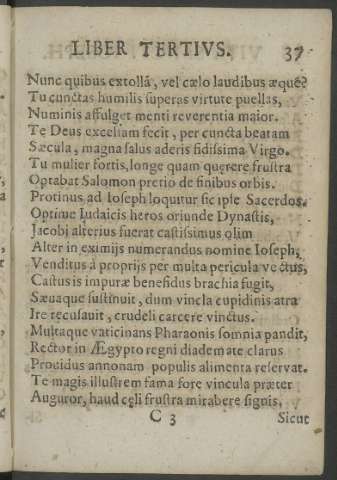 LIBER TERTIVS. 37
Nunc quibus extollã, vel cælo laudibus æque?
Tu cunctas humilis superas virtute puellas,
Numinis affulget menti reverentia maior.
Te Deus excelsam fecit, per cuncta beatam
Sæcula, magna salus aderis fidissima Virgo.
Tu mulier fortis, longe quam querere frustra
Optabat Salomon pretio de finibus orbis.
Protinus ad Ioseph loquitur sic ipse Sacerdos.
Optime Iudaicis heros oriunde Dynastis,
Jacobi alterius fuerat castissimus olim
Alter in eximijs numerandus nomine Ioseph,
Venditus à proprijs per multa pericula vectus,
Castus is impuræ benefidus brachia fugit,
Sævaque sustinuit, dum vincla cupidinis atra
Ire recusavit, crudeli carcere vinctus.
Multaque vaticinans Pharaonis somnia pandit,
Rector in Ægypto regni diademate clarus
Providus annonam populis alimenta reservat.
Te magis illustrem fama fore vincula præter
Auguror, haud cęli frustra mirabere signis,
C 3 Sicut